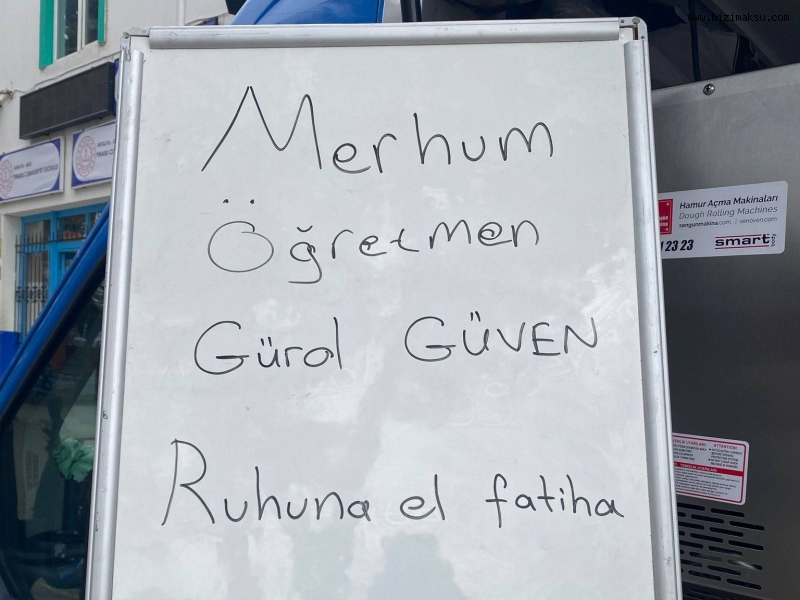 www.bizimaksu.com
Merhum
Öğretmen
Gürol GÜVEN
Ruhuna el fatiha
Hamur Açma Makinaları
Dough Rolling Machines
sengunmakina.com | senoven.com
23 23
smart
ATTENTION!